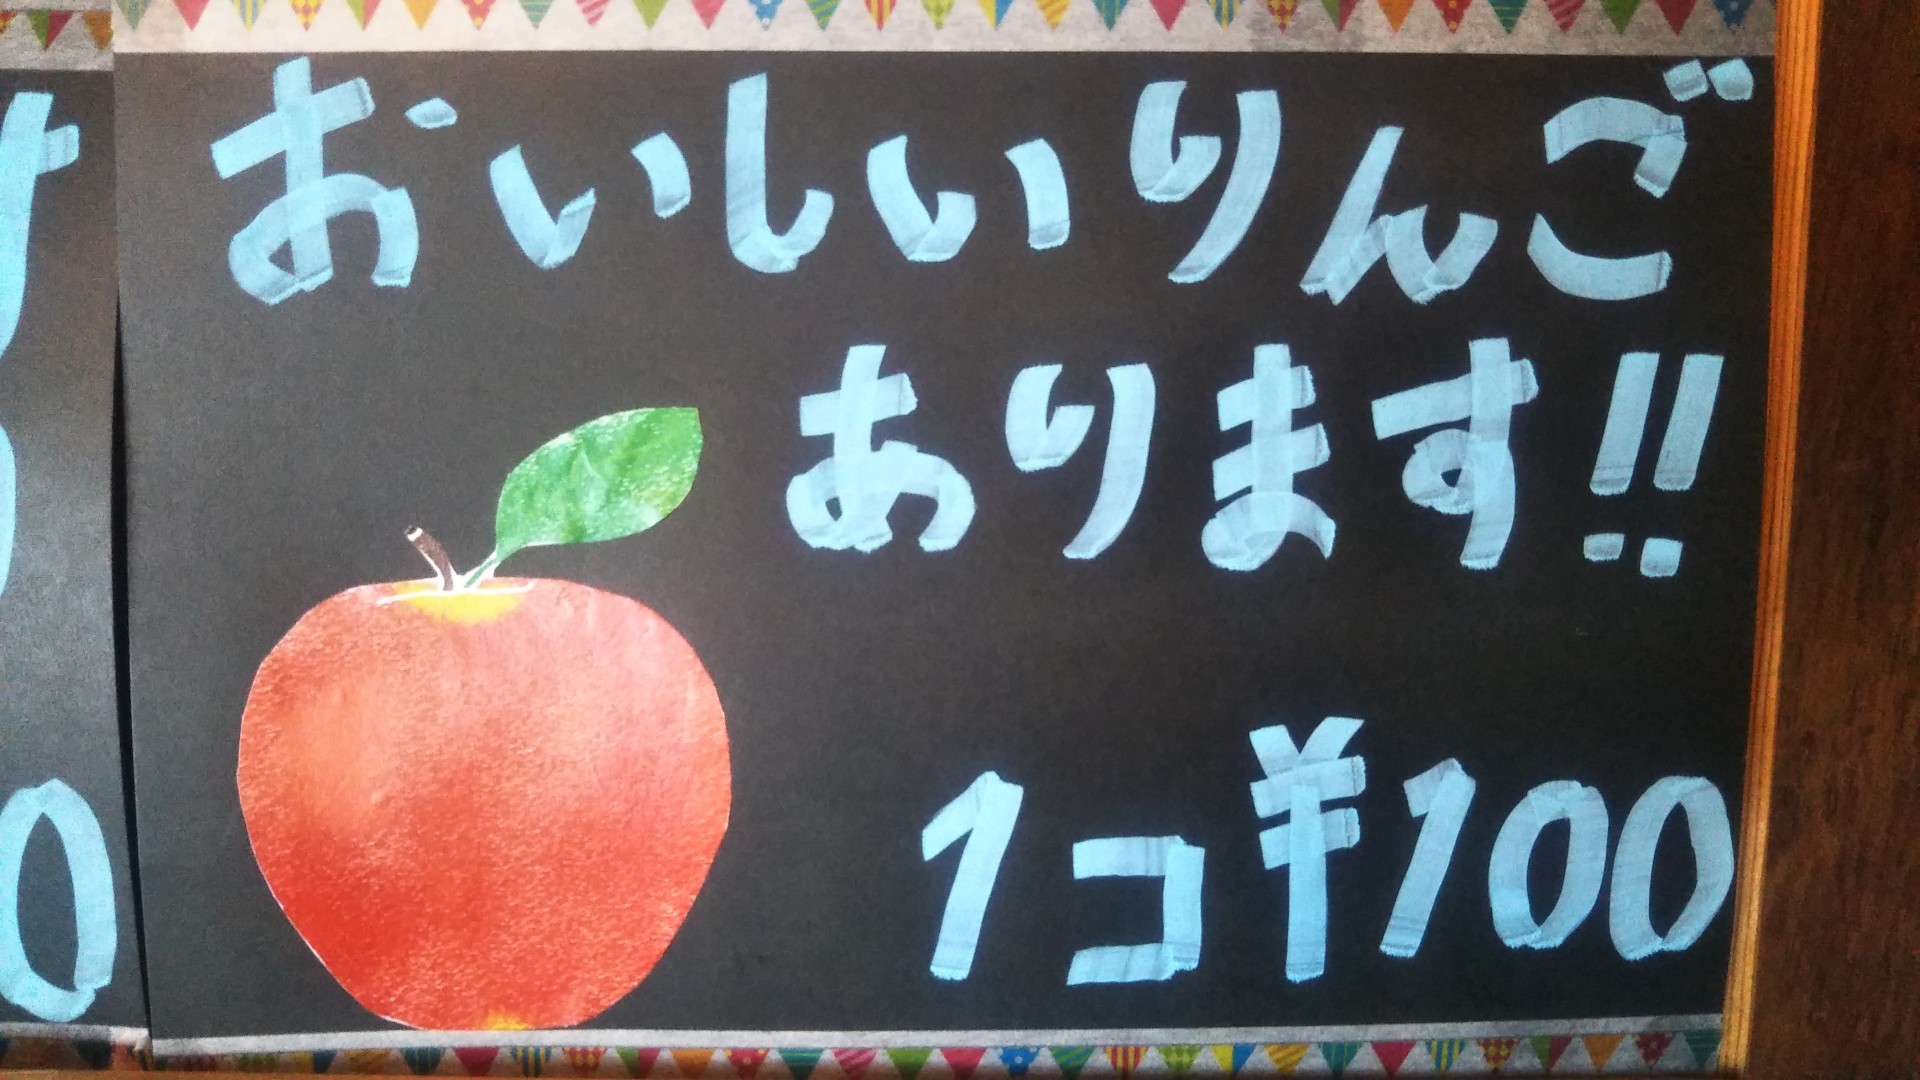 おいしいりんご
あります!!
1コ¥100